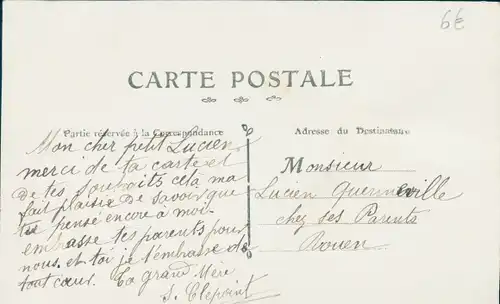 6€
CARTE POSTALE
Partie réservée à la Correspondance
Adresse du Destinataire
Mon cher petit Lucien
merci de ta carte et
de tes souhaits cela ma
fait plaisir de savoir que
tu pense encore a moi.
embrasse tes parents pour
nous. et toi je t'embrasse de
tout cœur. Ta grand Mère
Monsieur
Lucien
chez ses Parents
Rouen